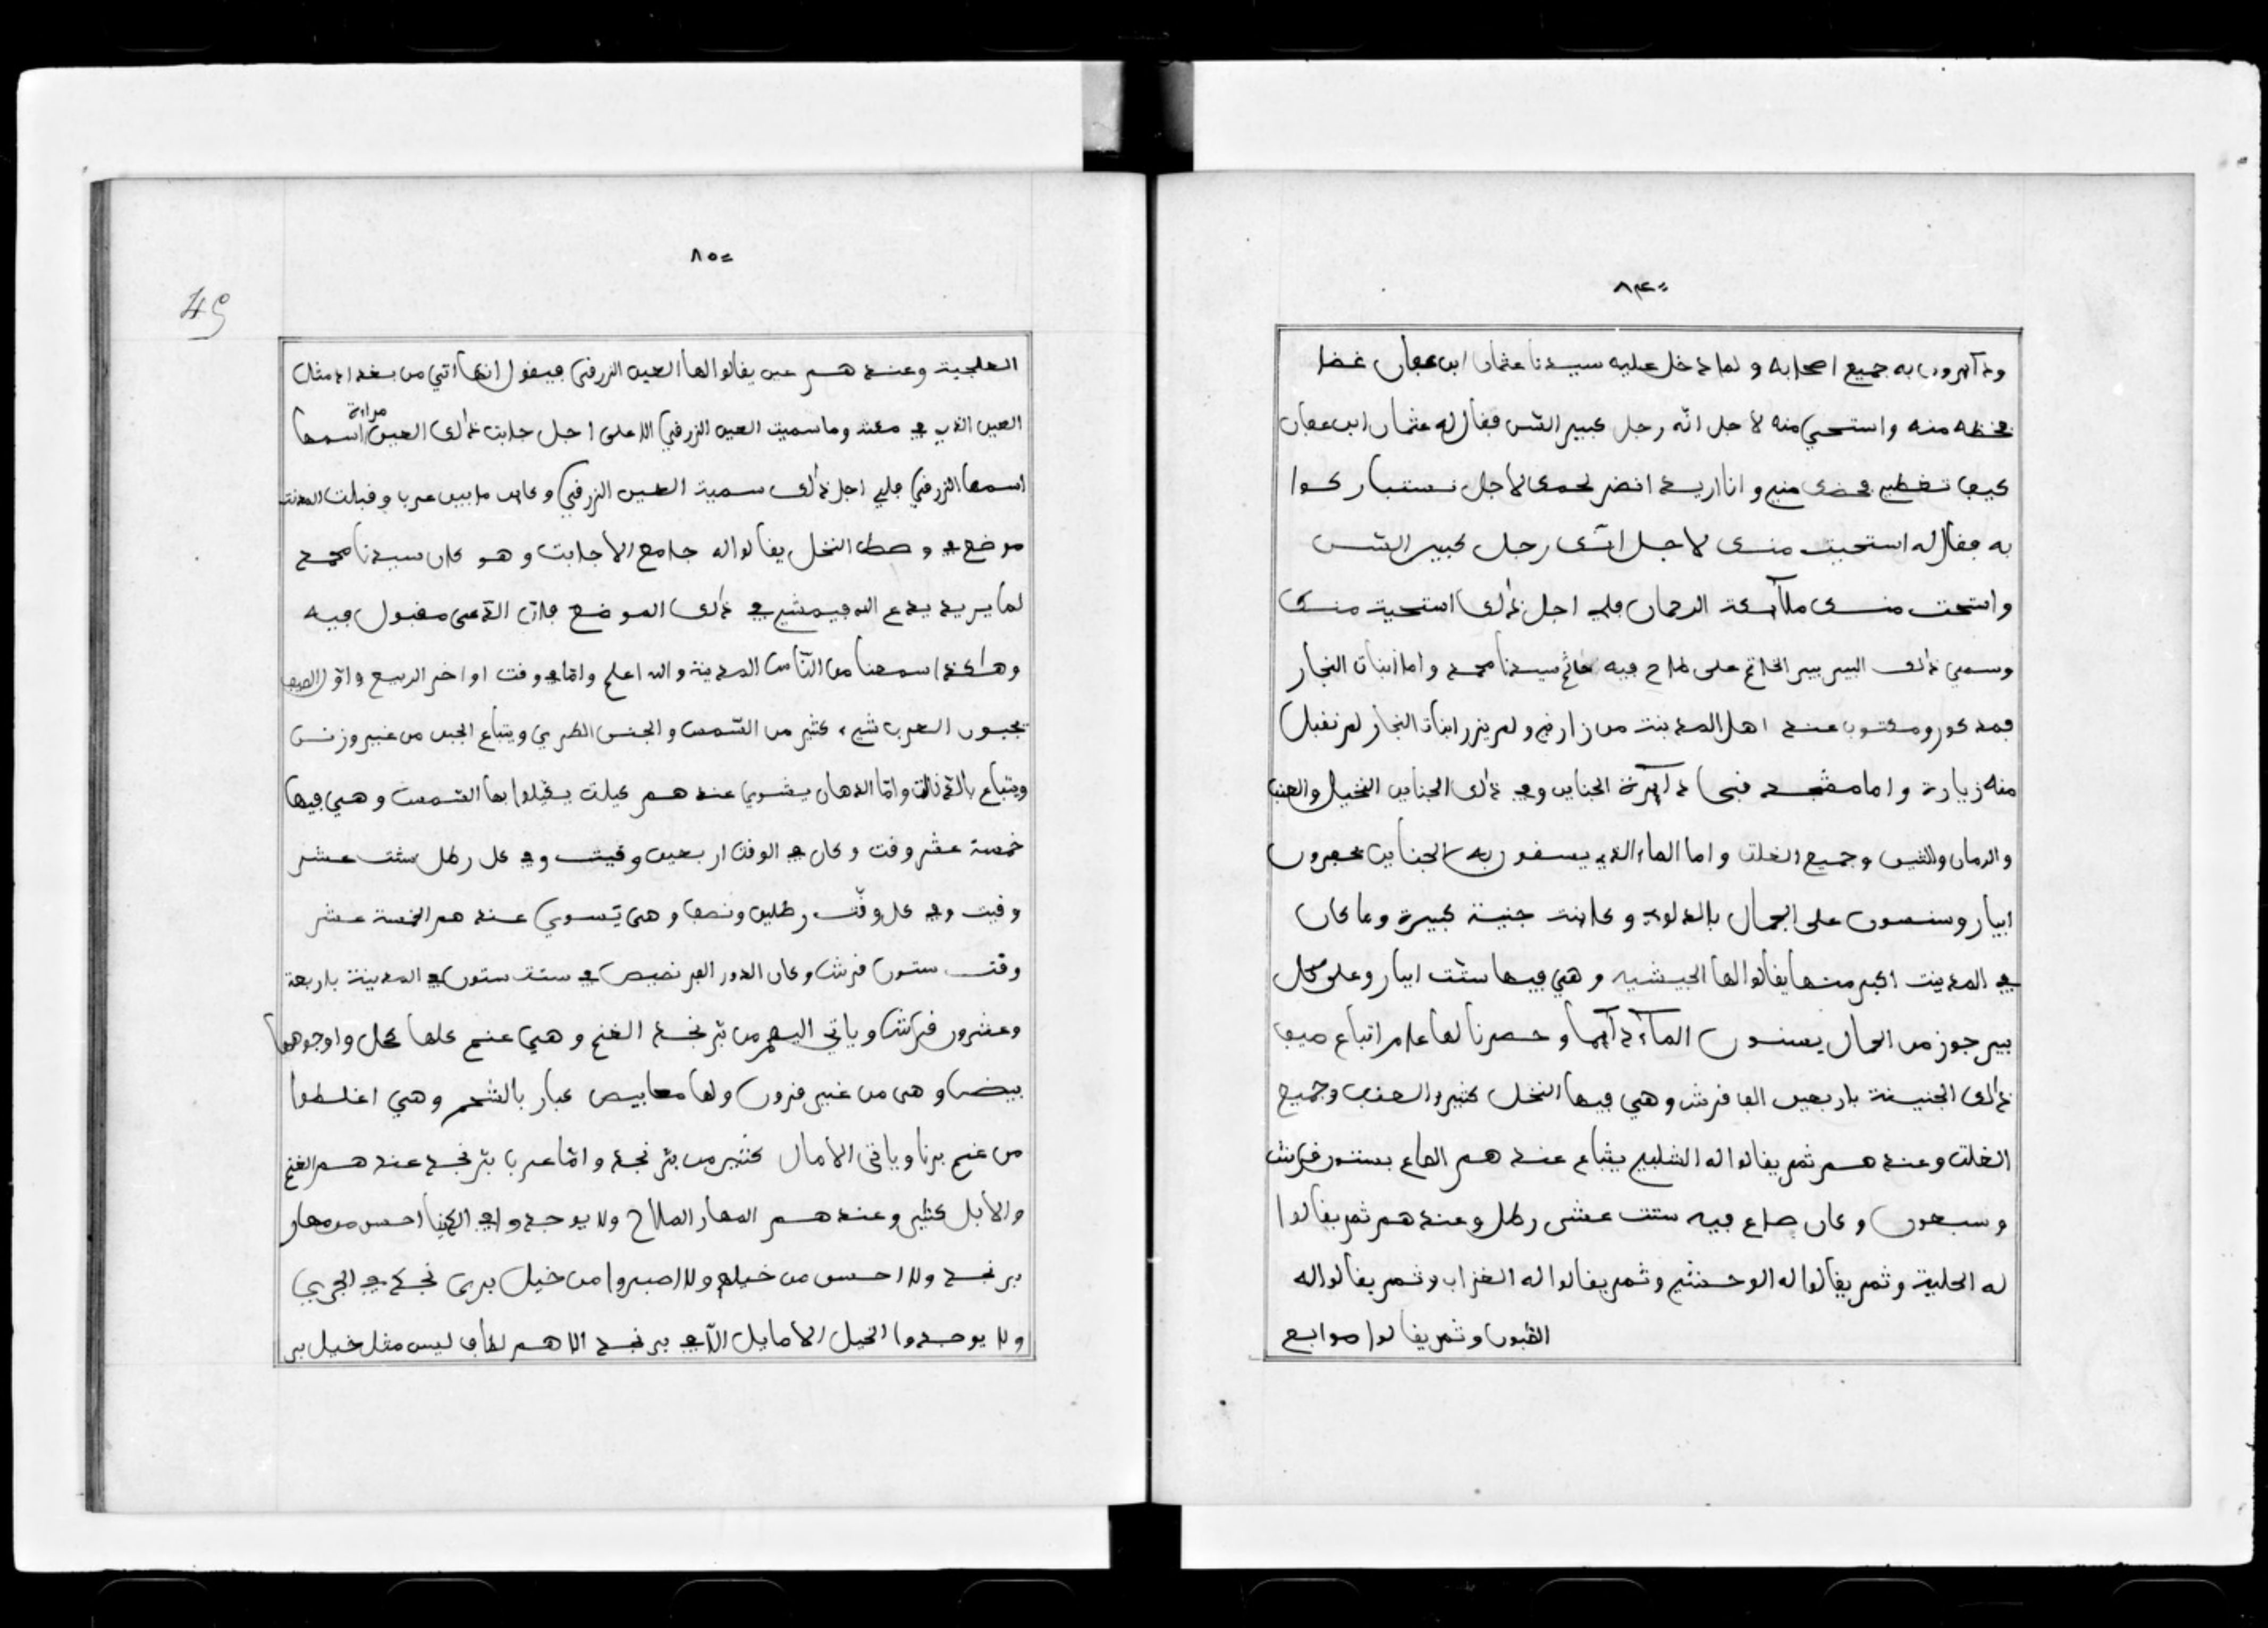 ٨٤
ودآيرون به جميع اصحابه و لما دخل عليه سيدنا عثمان ابن عفان غضا
فخظه منه واستحي منه لاجل انّه رجل كبير السّن فقال له عثمان ابن عفان
كيف تغطي فخضك مني وانا اريد انضر لحمك لاجل نستباركوا
به فقال له استحيت منك لاجل انّك رجل كبير السّن
واستحت منك ملآيكة الرحمان فلي اجل ذالك استحية منك
وسمي ذالك البير بير الخاتم على طاح فيه خاتم سيدنا محمد واما ابنات النجار
فمدكور ومكتوب عند اهل المدينت من زارني ولم يزر ابنات النجار لم نقبل
منه زيارة واما مسجد قبا دآيرة الجناين وفي ذالك الجناين النخيل والعنب
والرمان والتين وجميع الغلت واما الماء الذي يسقون به الجناين يحفرون
ابيار وسنون على الجمال بالدلو وكاينت جنينة كبيرة وما كان
في المدينت اكبر منها يقالوا لها الحيشيه وهي فيها ستت ابيار وعلى كل
بير جوز من الجمال يسنون المآء دآيما وحصرنا لها عام اتباع صيف
ذالك الجنينة باربعين الف قرش وهي فيها النخل كثير والعنب وجميع
الغلت وعندهم ثمر يقالوا له الشلبي يتباع عندهم الصاع بستون قرش
وسبعون وكان صاع فيه ستت عشر رطل وعندهم ثمر يقالوا
له الحلية وثمر يقالوا له الوحشي وثمر يقالوا له الغراب وثمر يقالوا له
القبون وثمر يقالوا صوابع
٨٥
49
العلجية وعندهم عين يقالوا لها العين الزرقى فيقول انها اتي من بغداد مثل
العين الذي في مكت وما سميت العين الزرقى الا على اجل جابت ذالك العين مراة اسمها
اسمها الزرقى فلي اجل ذالك سمية العين الزرقى وكان مابين عربا وقبلت المدنت
موضع في وصط النخل يقالوا له جامع الاجابت وهو كان سيدنا محمد
لما يريد يدع الله فيمشي في ذالك الموضع فان الدّعى مقبول فيه
وهاكذا سمعنا من النّاس المدينة والله اعلم وامّا في وقت اواخر الربيع واوّل الصيف
تجبون العرب شيء كثير من السّمن والجبن الطري ويتباع الجبن من غير وزن
ويتباع بالدّنانت وامّا الدهان يسوي عندهم كيلت يكيلوا بها السّمن وهي فيها
خمسة عشر وقت وكان في الوقت اربعين وقيت وفي كل رطل ستت عشر
وقيت وفي كل وقّت رطلين ونصف وهي تسوي عندهم الخمسة عشر
وقت ستون قرش وكان الدور الفرنصيص في ستت ستون في المدينة باربعة
وعشرون قرش وياتي اليهم من برّ نجد الغنم وهي غنم كلها كحل واوجوهها
بيض وهي من غير قرون ولها معابيص كبار بالشحم وهي اغلطوا
من غنم برنا وياتي الامال كثير من برّ نجد وامّا عربا برّ نجد عندهم الغنم
والابل كثير وعندهم المهار الملاح ولا يوجدوا في الدنيا احسن من مهار
بر نجد ولا احسن من خيلهم ولا اصبروا من خيل برى نجد في الجري
ولا يوجدوا الخيل الامايل الّا في بر نجد الا هم لطاف ليس مثل خيل بر